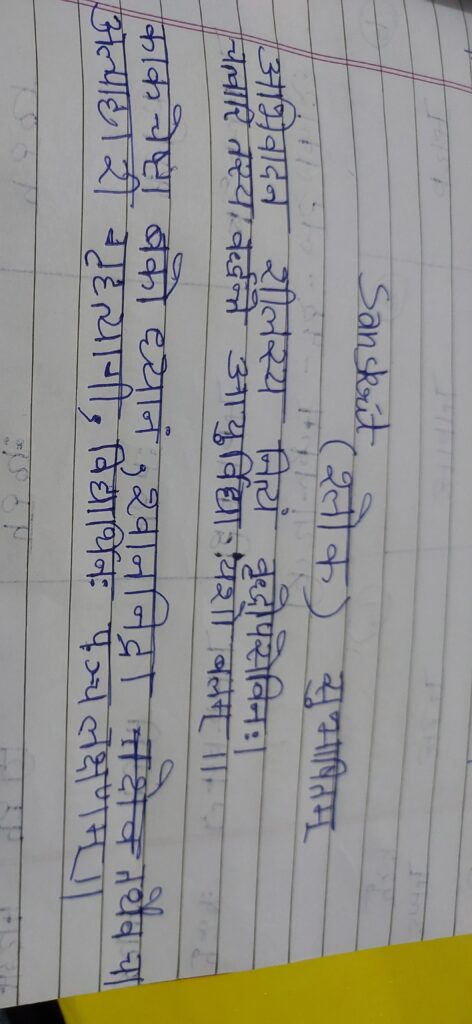 Sanskrit
(श्लोक) सुभाषितम्
अभिवादन शीलस्य नित्यं वृद्धोपसेविनः।
चत्वारि तस्य वर्द्धन्ते आयुर्विद्याः यशो बलम् ॥
काक चेष्टा बको ध्यानं, श्वान निद्रा तथैव च।
अल्पाहारी गृहत्यागी, विद्यार्थिनः पञ्च लक्षणम् ॥